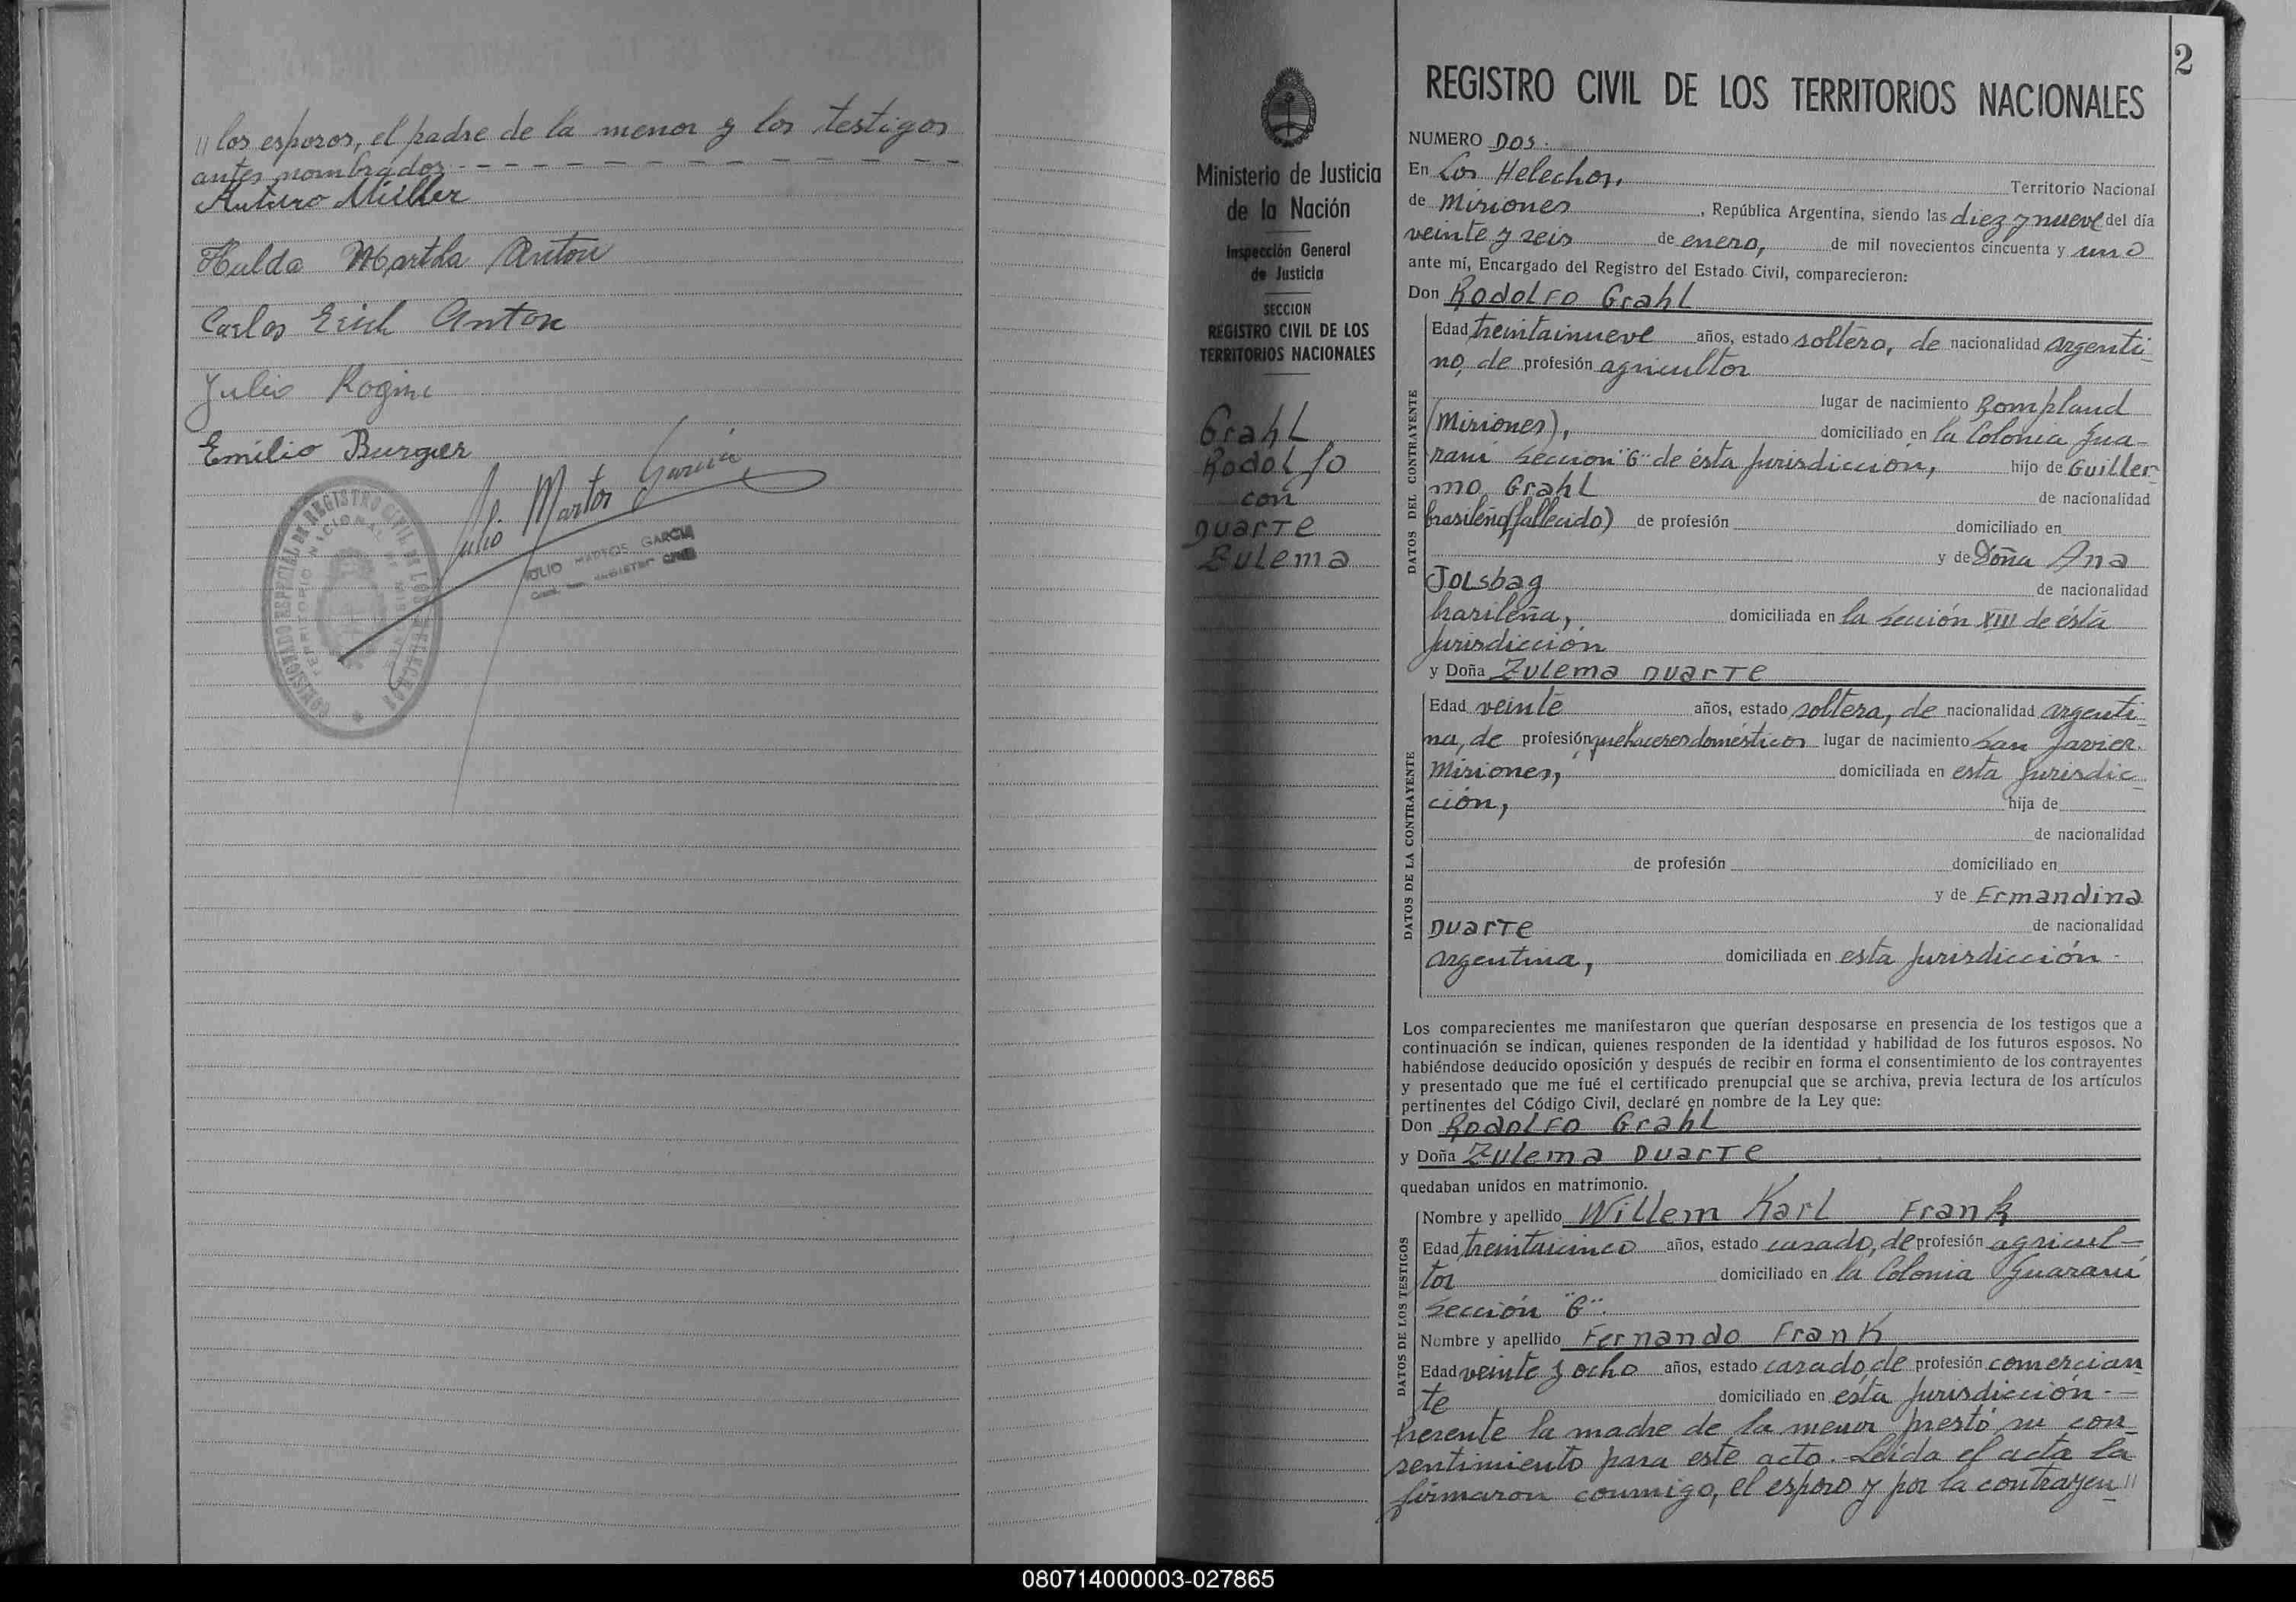 // los esposos, el padre de la menor y los testigos
antes nombrados
Arturo Müller
Hulda Martha Anton
Carlos Erich Anton
Julio
Emilio Burger
Julio Martos Garcia
JULIO MARTOS GARCIA
COMISIONADO ESPECIAL DE REGISTRO CIVIL DE LOS HELECHOS
TERRITORIO NACIONAL DE MISIONES
2
Ministerio de Justicia
de la Nación
Inspección General
de Justicia
SECCION
REGISTRO CIVIL DE LOS
TERRITORIOS NACIONALES
Grahl
Rodolfo
con
Duarte
Zulema
REGISTRO CIVIL DE LOS TERRITORIOS NACIONALES
NUMERO DOS.
En Los Helechos, Territorio Nacional
de Misiones, República Argentina, siendo las diez y nueve del día
veinte y seis de enero, de mil novecientos cincuenta y uno
ante mí, Encargado del Registro del Estado Civil, comparecieron:
Don Rodolfo Grahl
DATOS DEL CONTRAYENTE
Edad treintainueve años, estado soltero, de nacionalidad argenti-
no, de profesión agricultor
lugar de nacimiento Bompland
(Misiones), domiciliado en la Colonia Gua-
raní Sección "G" de ésta Jurisdicción, hijo de Guiller-
mo Grahl de nacionalidad
brasileño (fallecido) de profesión domiciliado en
y de Doña Ana
Jolsbag de nacionalidad
brasileña, domiciliada en la Sección XIII de ésta
Jurisdicción
y Doña Zulema Duarte
DATOS DE LA CONTRAYENTE
Edad veinte años, estado soltera, de nacionalidad argenti-
na, de profesión quehaceres domésticos lugar de nacimiento San Javier.
Misiones, domiciliada en esta Jurisdic-
ción, hija de
de nacionalidad
de profesión domiciliado en
y de Ermandina
Duarte de nacionalidad
argentina, domiciliada en esta Jurisdicción.
Los comparecientes me manifestaron que querían desposarse en presencia de los testigos que a
continuación se indican, quienes responden de la identidad y habilidad de los futuros esposos. No
habiéndose deducido oposición y después de recibir en forma el consentimiento de los contrayentes
y presentado que me fué el certificado prenupcial que se archiva, previa lectura de los artículos
pertinentes del Código Civil, declaré en nombre de la Ley que:
Don Rodolfo Grahl
y Doña Zulema Duarte
quedaban unidos en matrimonio.
DATOS DE LOS TESTIGOS
Nombre y apellido Willem Karl Frank
Edad treintaicinco años, estado casado, de profesión agricul-
tor domiciliado en la Colonia Guaraní
Sección "G".
Nombre y apellido Fernando Frank
Edad veinte y ocho años, estado casado, de profesión comercian
te domiciliado en esta Jurisdicción.-
Presente la madre de la menor prestó su con-
sentimiento para este acto. Leída el acta la
firmaron conmigo, el esposo y por la contrayen //
080714000003-027865